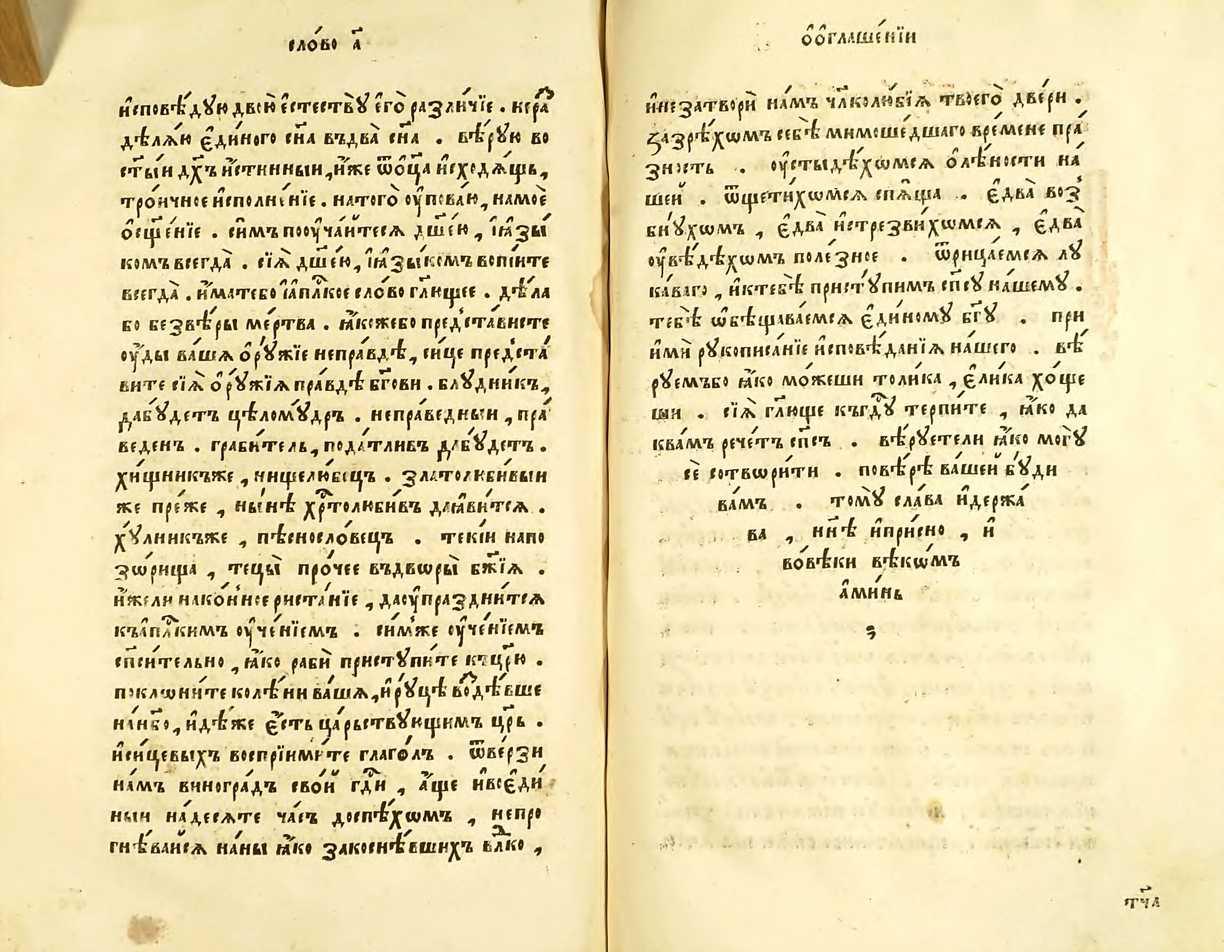 сло́во а҃
и҆сповѣ́дꙋю двою̀ є҆стествꙋ̀ є҆го̀ разли́чїе . нера
дѣлѧ́ю є҆ди́ного сн҃а въдва̀ сн҃а . вѣ́рꙋю во
ст҃ы́и дх҃ъ и҆́стинныи , и҆́же ѿо҆ц҃а и҆сходѧ́щь ,
трои́чное и҆сполне́нїе . натого̀ ᲂу҆пова́ю , намоѐ
о҆сщ҃е́нїе . си́мъ поᲂу҆ча́итесѧ дш҃ею , і҆ꙗ҆зы́
комъ всегда̀ . сїѧ̀ дш҃е́ю , і҆ꙗ҆зы́комъ вопі́ите
всегда̀ . и҆́матебо і҆а҆пⷭ҇лкое сло́во гл҃ющее . дѣ́ла
бо безвѣ́ры ме́ртва . ꙗ҆́коже бо предста́висте
ᲂу҆́ды ва́шѧ ѻ҆рꙋ́жїе непра́вдѣ , си́це предста́
вите сїѧ̀ ѻ҆рꙋ́жїѧ пра́вдѣ бг҃ови . блꙋдни́къ ,
дабꙋ́детъ цѣломꙋ́дръ . непра́ведныи , пра́
веденъ . граби́тель , пода́тливъ дабꙋ́детъ .
хи́щникъже , нищелю́бецъ . златолюби́выи
же пре́же , ны́нѣ хрⷭ҇толюби́въ даꙗ҆ви́тсѧ .
хꙋ́лникъже , пѣсносло́вецъ . теки́и напо
зѡ́рища , тецы̀ про́чее въдвѡры̀ бж҃їѧ .
и҆́жели нако́нное риста́нїе , даᲂу҆пра́зднитсѧ
къа҆пⷭ҇лкимъ ᲂу҆че́нїемъ . си́мже ᲂу҆че́нїемъ
сп҃си́тельно , ꙗ҆́ко рабѝ пристꙋпи́те къцр҃ю̀ .
поклѡни́те колѣ́ни ва́шѧ , и҆рꙋ́цѣ воⷥдѣ́вше
нанб҃о , и҆дѣ́же є҆́сть ца́рьствꙋющимъ цр҃ь .
и҆си́цевыхъ воспріими́те глаго́лъ . ѿве́рзи
на́мъ виногра́дъ сво́й гдⷭ҇и , а҆́ще и҆воє҆ди́
ныи на́десѧте ча́съ доспѣ́хѡмъ , непро
гнѣ́вайсѧ на́ны ꙗ҆́ко закоснѣ́вшихъ влⷣко ,
ѻ҆ѻ҆глаше́нїи
и҆незатворѝ на́мъ чл҃колю́бїѧ твоего̀ две́ри .
зазрѣ́хѡмъ себѣ̀ мимоше́дшаго вре́мене пра́
зность . ᲂу҆стыдѣ́хѡмсѧ о҆лѣ́ности на́
шей . ѿщети́хѡмсѧ спѧ́ща . є҆два̀ воз
бнꙋ́хѡмъ , є҆два̀ и҆стрезви́хѡмсѧ , є҆два̀
ᲂу҆вѣ́дѣхѡмъ поле́зное . ѿрица́емсѧ лꙋ
ка́ваго , и҆ктебѣ̀ пристꙋ́пимъ сп҃сꙋ на́шемꙋ .
тебѣ̀ ѡ҆бѣщава́емсѧ є҆ди́номꙋ бг҃ꙋ . при
и҆мѝ рꙋкописа́нїе и҆сповѣ́данїѧ на́шего . вѣ́
рꙋемъбо ꙗ҆́ко мо́жеши толи́ка , є҆ли́ка хо́ще
ши . сїѧ̀ гл҃юще къгдⷭ҇ꙋ терпи́те , ꙗ҆́ко да
ква́мъ рече́тъ сп҃съ . вѣ́рꙋетели ꙗ҆́ко могꙋ̀
сѐ сотвори́ти . повѣ́рѣ ва́шей бꙋ́ди
ва́мъ . томꙋ̀ сла́ва и҆держа́
ва , нн҃ѣ и҆при́сно , и҆
вовѣ́ки вѣкѡ́мъ
а҆ми́нь
тч҃а